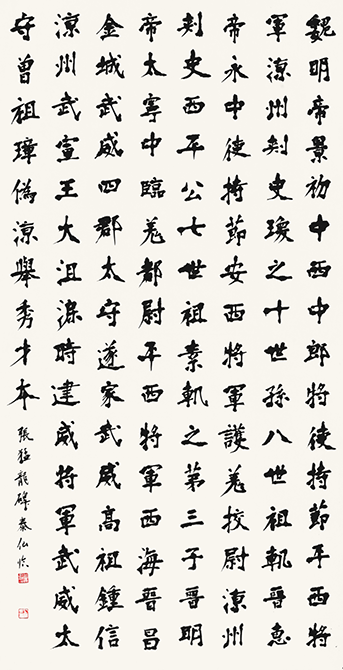 魏明帝景初中西中郎將使持節平西將
軍涼州刺史瑍之十世孫八世祖軌晉惠
帝永中使持節安西將軍護羌校尉涼州
刺史西平公七世祖素軌之第三子晉明
帝太寧中臨羌都尉平西將軍西海晉昌
金城武威四郡太守遂家武威高祖鍾信
涼州武宣王大沮渠時建威將軍武威太
守曾祖璋偽涼舉秀才本
張猛龍碑